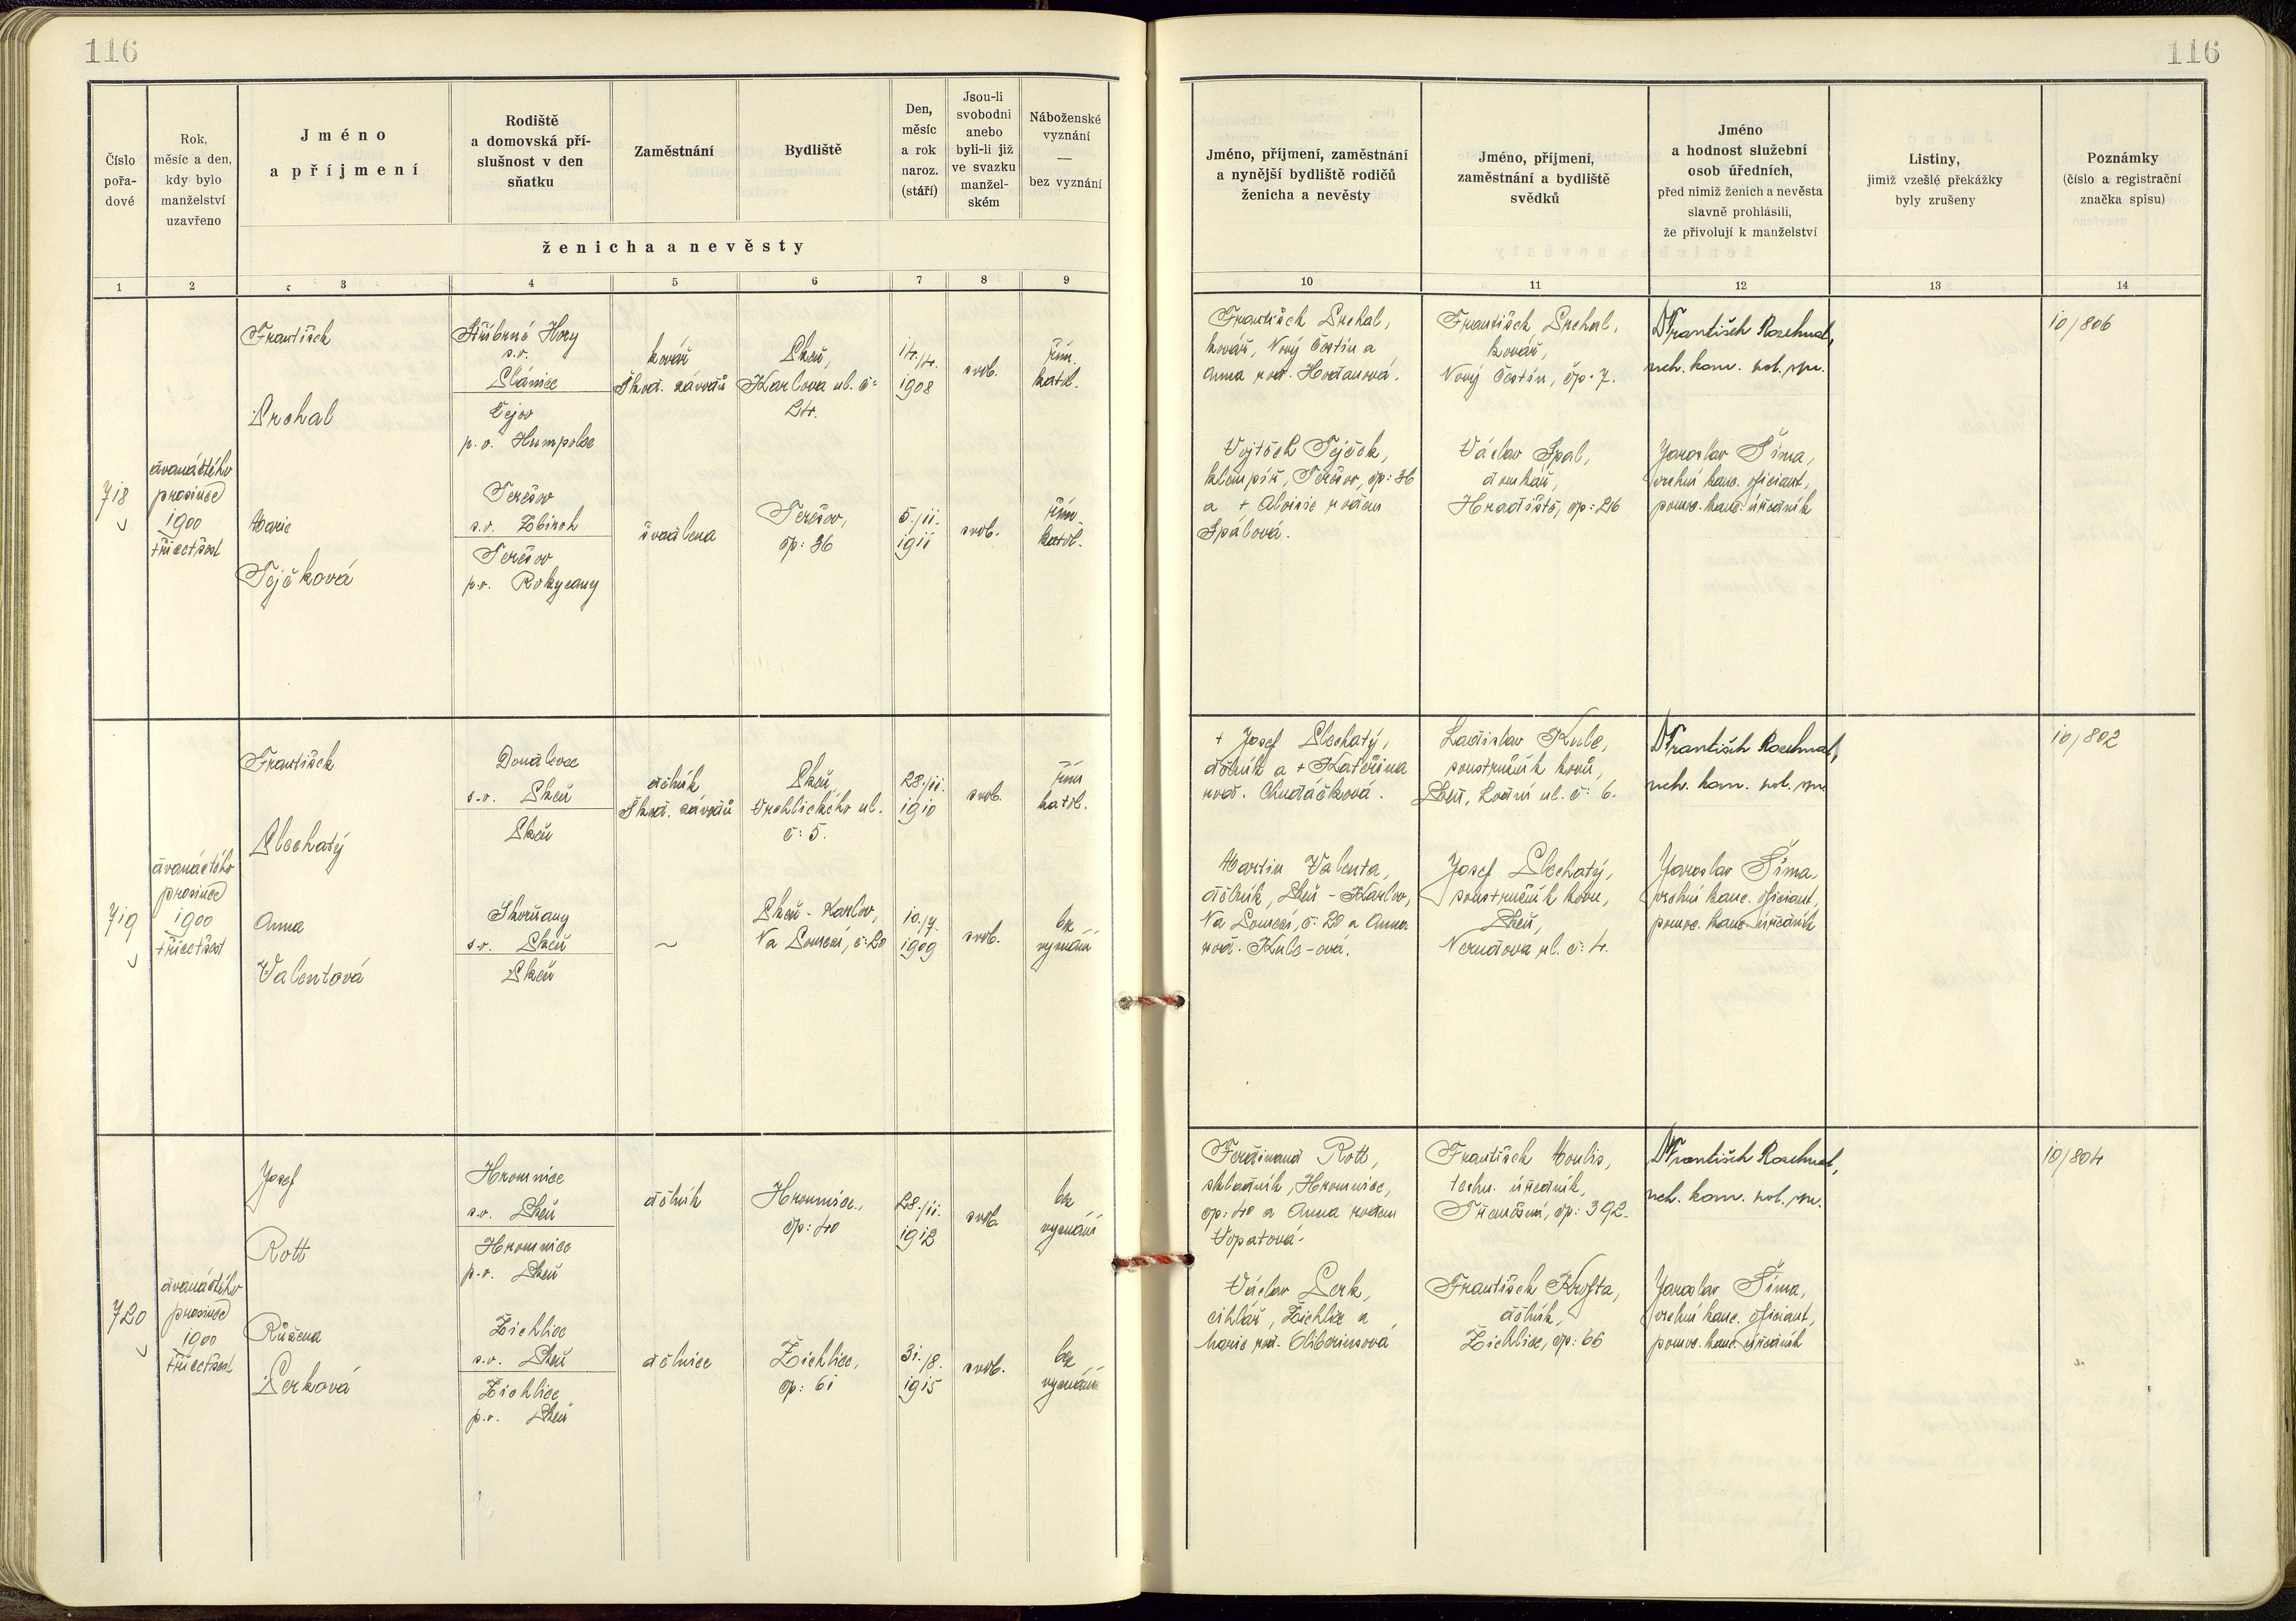 116
116
Číslo pořa-dové
Rok, měsíc a den, kdy bylo manželství uzavřeno
Jméno a příjmení
Rodiště a domovská pří-slušnost v den sňatku
Zaměstnání
Bydliště
Den, měsíc a rok naroz. (stáří)
Jsou-li svobodni anebo byli-li již ve svazku manžel-ském
Náboženské vyznání — bez vyznání
ženicha a nevěsty
Jméno, příjmení, zaměstnání a nynější bydliště rodičů ženicha a nevěsty
Jméno, příjmení, zaměstnání a bydliště svědků
Jméno a hodnost služební osob úředních, před nimiž ženich a nevěsta slavně prohlásili, že přivolují k manželství
Listiny, jimiž vzešlé překážky byly zrušeny
Poznámky (číslo a registrační značka spisu)
1 2 3 4 5 6 7 8 9 10 11 12 13 14
718
dvanáctého
prosince
1900
třicetšest
František
Prchal
Stříbrné Hory
s.o.
Plánice
Čejov
p.o. Humpolec
kovář
Škod. závodů
Plzeň,
Karlova ul. č:
24.
14./4.
1908
svob.
řím.
katol.
Marie
Tejčková
Terešov
s.o. Zbiroh
Terešov
p.o. Rokycany
švadlena
Terešov,
čp: 36
5./11.
1911
svob.
řím.
katol.
František Prchal,
kovář, Nový Čestín a
Anna roz.
Vojtěch Tejček,
klempíř, Terešov, čp: 36
a + Aloisie rozen
Špálová.
František Prchal,
kovář,
Nový Čestín, čp: 7.
Václav Špal,
domkář,
Hradiště, čp: 26
Dr František Rozehnal,
Jaroslav Šíma,
vrchní kanc. oficiant,
pomoc. kanc. úředník
10/806
719
dvanáctého
prosince
1900
třicetšest
František
Plechatý
Doudlevce
s.o. Plzeň
Plzeň
dělník
Škod. závodů
Plzeň,
Vrchlického ul.
č: 5.
28./11.
1910
svob.
řím.
katol.
Anna
Valentová
Skvrňany
s.o. Plzeň
Plzeň
~
Plzeň - Karlov,
Na Pomezí, č: 20
10./7.
1909
svob.
bez
vyznání
+ Josef Plechatý,
dělník a + Kateřina
roz. Chudáčková.
Martin Valenta,
dělník, Plzeň - Karlov,
Na Pomezí, č: 20 a Anna
roz. Kulc-ová.
Ladislav Kulc,
soustružník kovů,
Plzeň, Lodní ul. č: 6.
Josef Plechatý,
soustružník kovu,
Plzeň,
Nerudova ul. č: 4.
Dr František Rozehnal,
Jaroslav Šíma,
vrchní kanc. oficiant,
pomoc. kanc. úředník
10/802
720
dvanáctého
prosince
1900
třicetšest
Josef
Rott
Hromnice
s.o. Plzeň
Hromnice
p.o. Plzeň
dělník
Hromnice,
čp: 40
28./11.
1912
svob.
bez
vyznání
Růžena
Perková
Žichlice
s.o. Plzeň
Žichlice
p.o. Plzeň
dělnice
Žichlice,
čp: 61
31./8.
1915
svob.
bez
vyznání
Ferdinand Rott,
skladník, Hromnice,
čp: 40 a Anna rozen
Vopatová.
Václav Perk,
cihlář, Žichlice a
Marie roz.
František Moulis,
techn. úředník,
Třemošná, čp: 392.
František Krofta,
dělník,
Žichlice, čp: 66
Dr František Rozehnal,
Jaroslav Šíma,
vrchní kanc. oficiant,
pomoc. kanc. úředník
10/804